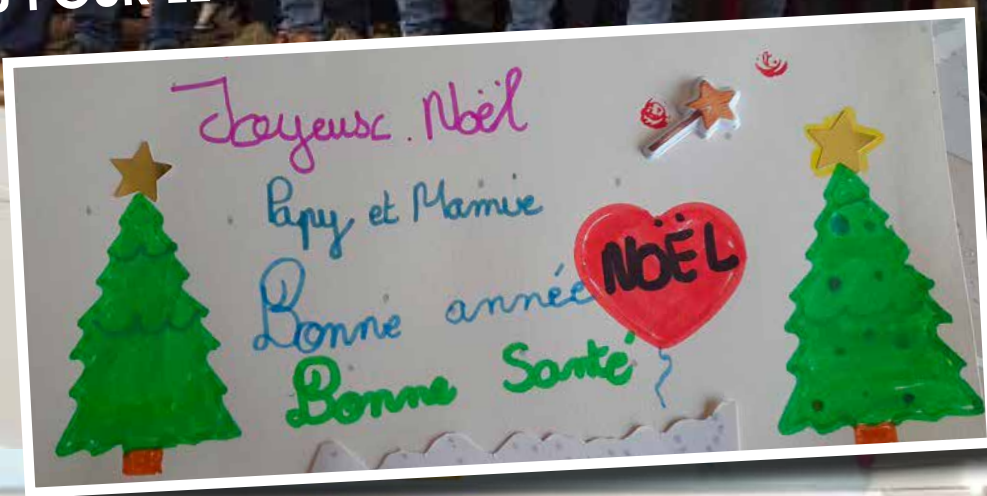 POUR LE
Joyeuse. Noël
Papy et Mamie
Bonne année
NOËL
Bonne Santé